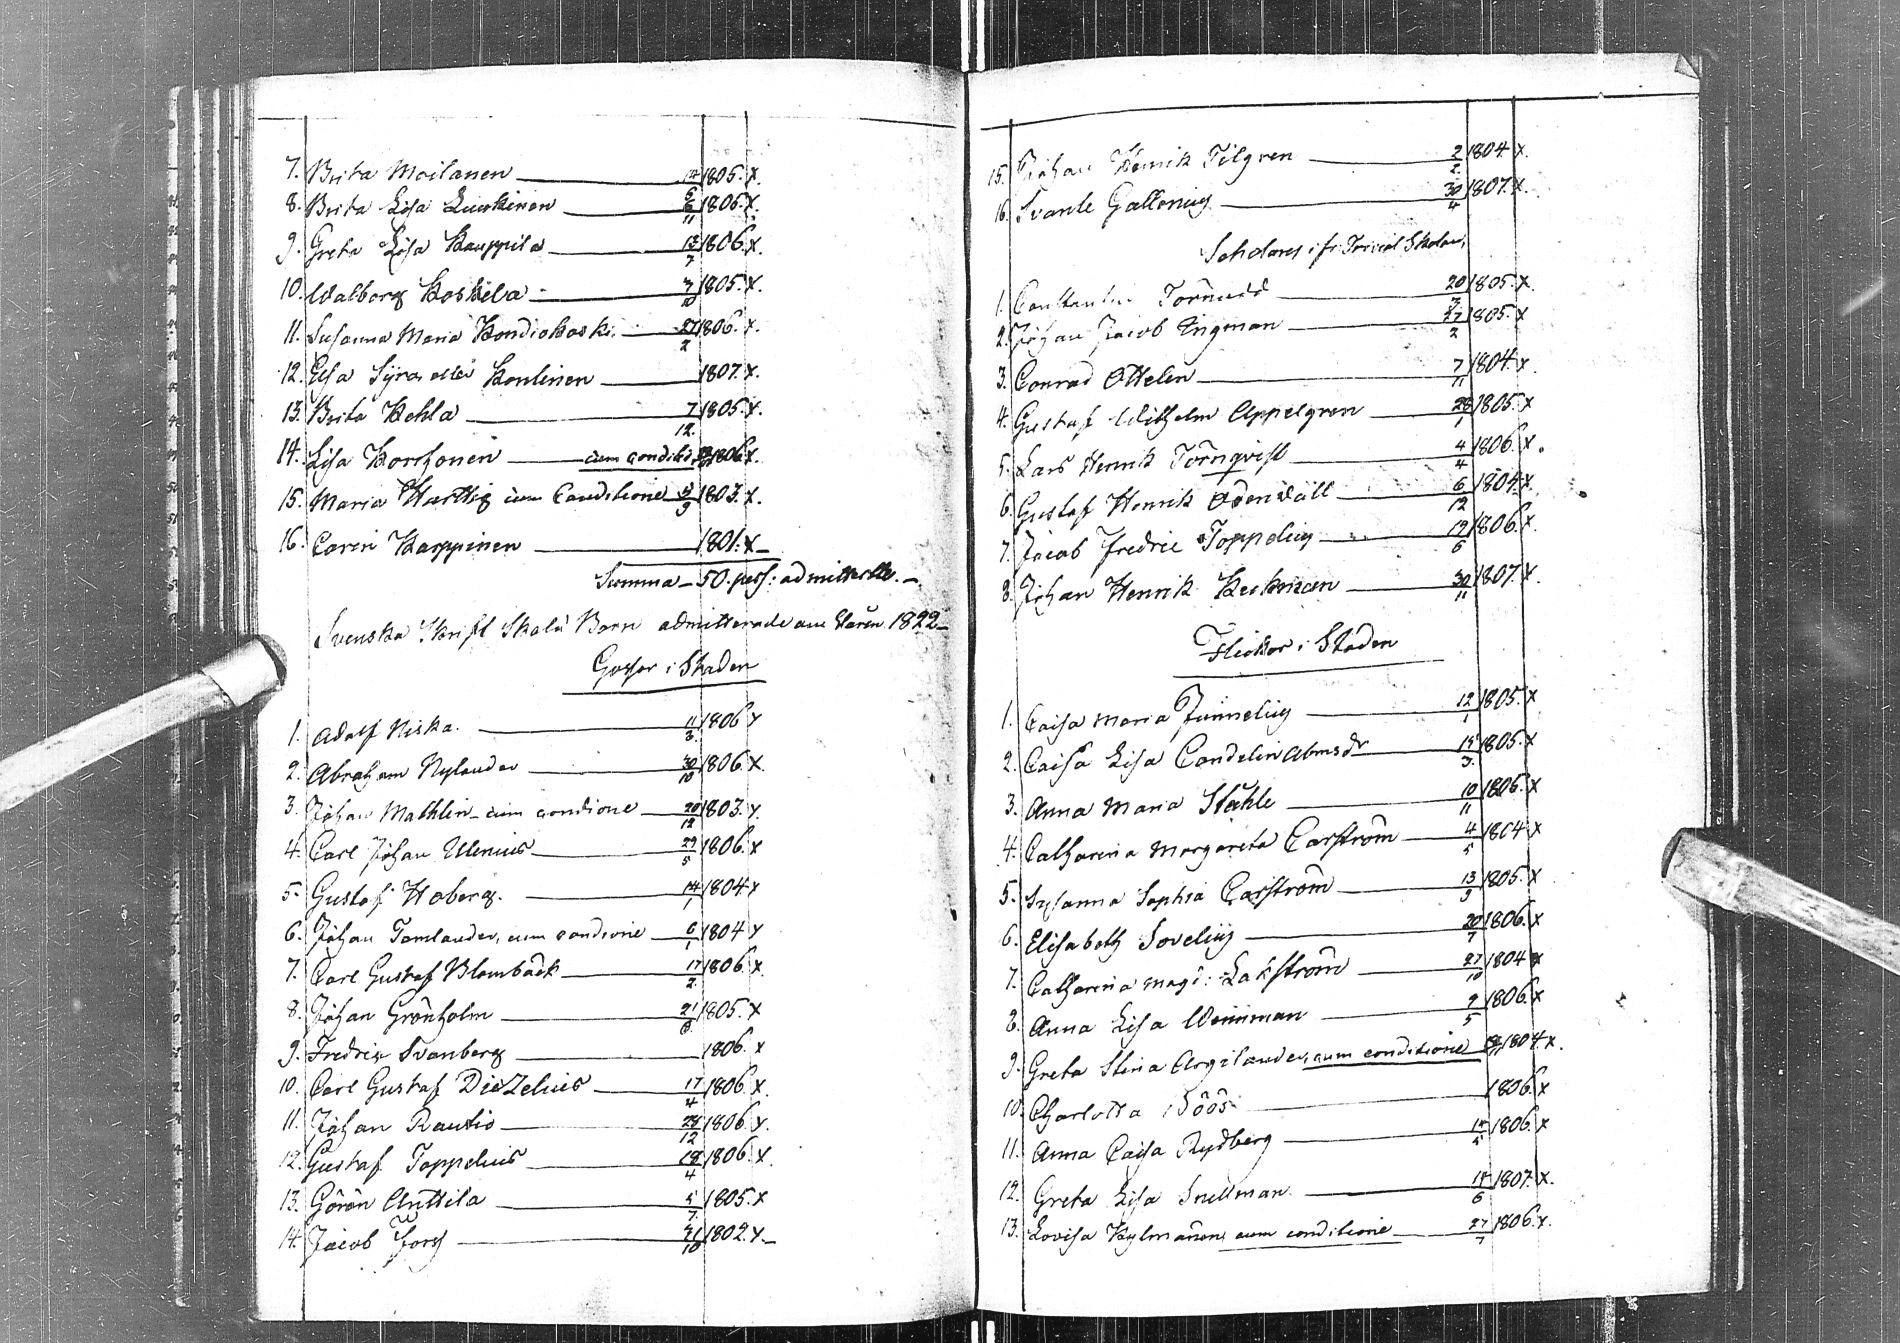 7. Brita Moilanen 14/5 1805. x.
8. Brita Lisa Luukinen 6/11 1806. x.
9. Greta Lisa Kauppila 13/7 1806. x.
10. Walborg Koskela 7/10 1805. x.
11. Susanna Maria Kondiokoski 27/2 1806. x.
12. Elsa eller Konlinen 1807. x.
13. Brita Kehla 7/12 1805. x.
14. Lisa Korhonen cum conditi. 1806. x.
15. Maria Harttig cum Conditione 1803. x.
16. Carin Karppinen 1801. x
Summa 50. pers: admitterade.
Svenska Skrift Skole Barn admitterade om Våren 1822
Gossar i Staden
1. Adolf Niska. 11/3 1806 x
2. Abraham Nylander 30/10 1806. x.
3. Johan Mathlin cum condione 20/12 1803. x.
4. Carl Johan Ulenius 29/5 1806. x
5. Gustaf Hoberg. 14/1 1804 x
6. Johan Tamlander, cum condione 6/1 1804 x
7. Carl Gustaf Blombäck 17/2 1806. x
8. Johan Grönholm 21/8 1805. x
9. Fredric Svanberg 1806. x
10. Carl Gustaf Diezelius 17/4 1806. x
11. Johan Rautio 28/12 1806 x.
12. Gustaf Toppelius 18/4 1806. x
13. Göran Anttila 5/7 1805. x
14. Jacob Fors 21/10 1802. x
15. Johan Henrik Tilgren 2/2 1804. x.
16. Svante Gallenius 30/4 1807. x.
Scholares ifr. Trivial Skolan,
1. Constantin Törnudd 20/3 1805. x.
2. Johan Jacob Engman 27/2 1805. x
3. Conrad Ottelin 7/11 1804. x.
4. Gustaf Wilhelm Appelgren 28/1 1805. x
5. Lars Henrik Törnqvist 4/4 1806. x.
6. Gustaf Henrik Odenvall 6/12 1804. x.
7. Jacob Fredric Toppelius 19/6 1806. x
8. Johan Henrik Keckman 30/11 1807. x.
Flickor i Staden
1. Caisa Maria Junnelius 12/1 1805. x
2. Caisa Lisa Candelin 15/3 1805. x
3. Anna Maria Ståhle 10/11 1806. x
4. Catharina Margareta Carström 4/5 1804 x
5. Susanna Sophia Carström 13/9 1805. x
6. Elisabeth Sovelius 20/7 1806. x
7. Catharina Magd: Lakström 27/10 1804 x
8. Anna Lisa Weinman 9/5 1806. x
9. Greta Stina Argelander, cum conditione 1804 x.
10. Charlotta Böös 1806. x
11. Anna Caisa Rydberg 1806. x
12. Greta Lisa Snellman 1807. x.
13. Lovisa Kylmänen cum conditione 27/7 1806. x.